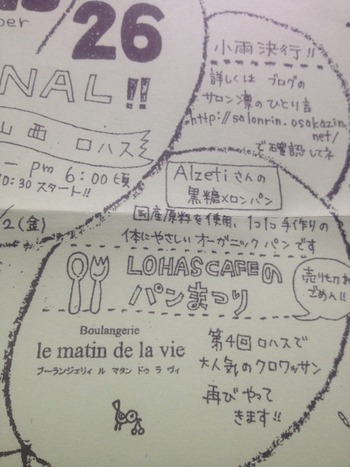 26
ber
NAL!!
山西 ロハス
pm 6:00頃
10:30 スタート!!
/2(金)
小雨決行!!
詳しくは ブログの
サロン凛のひとり言
http://salonrin.osakazin.
net/
で確認してネ
Alzetiさんの
黒糖メロンパン
国産原料を使用、1つ1つ手作りの
体にやさしいオーガニックパンです
LOHASCAFEの
パンまつり
売り切れ
ごめん!!
Boulangerie
le matin de la vie
ブーランジェリィ ル マタン ドゥ ラ ヴィ
第4回ロハスで
大人気のクロワッサン
再びやって
きます!!